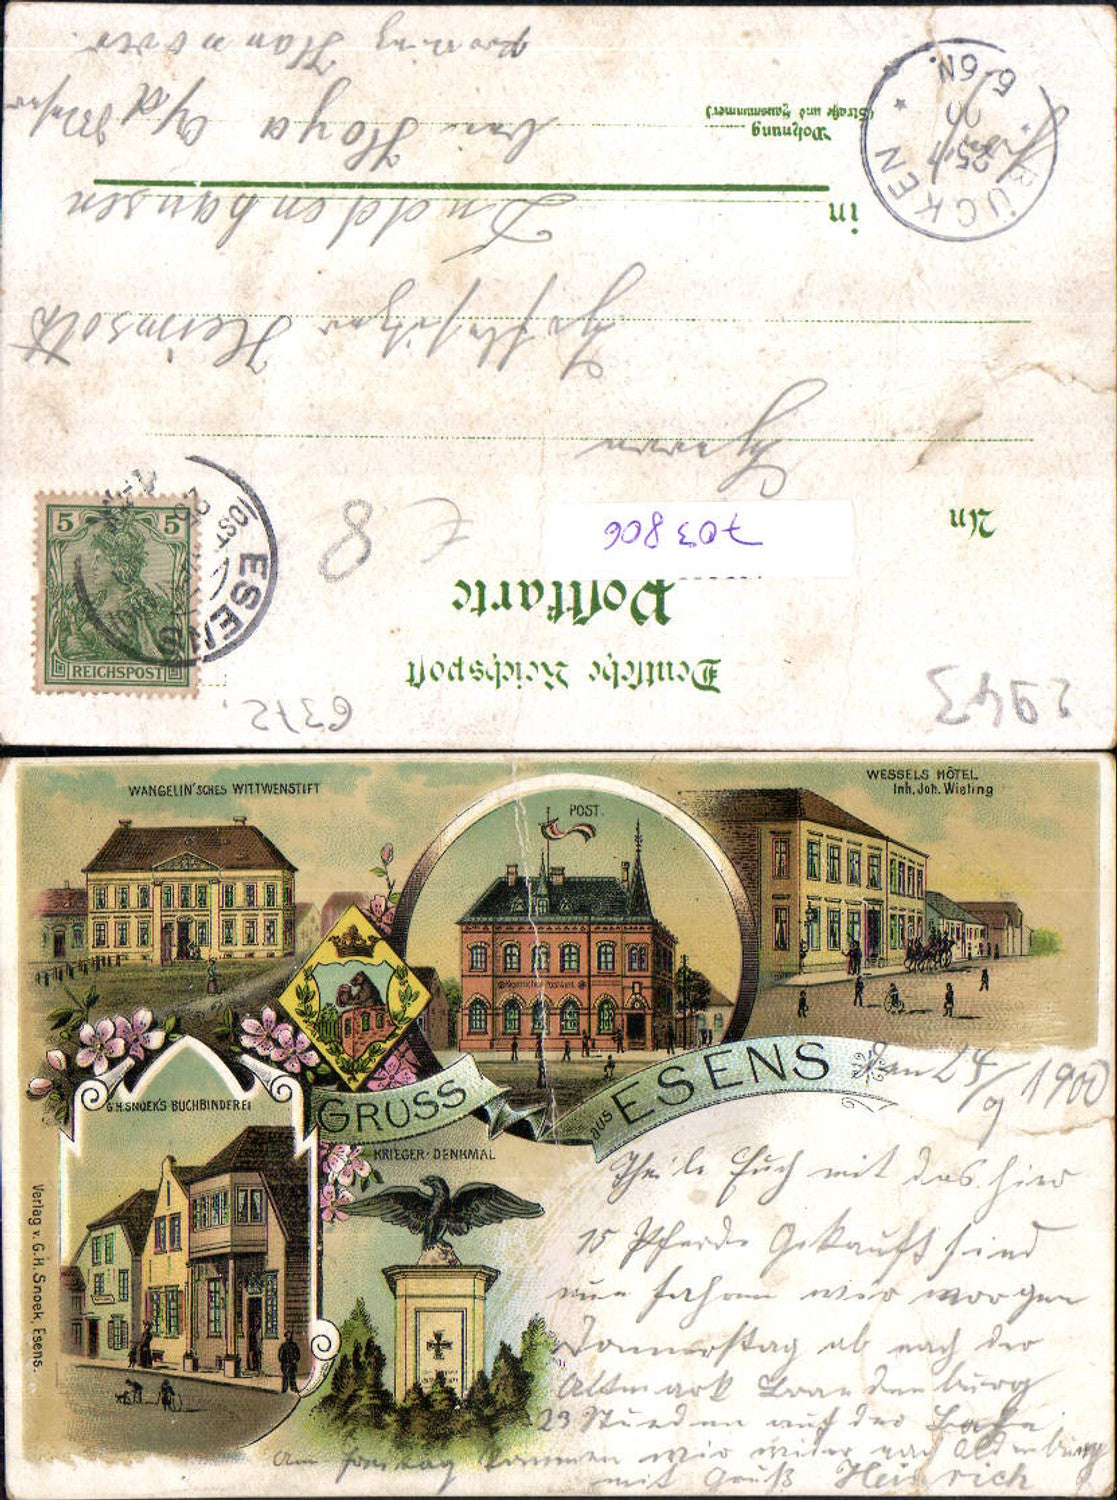 Deutsche Reichspost
Postkarte
703806
An
Herrn
Hofbesitzer Heimsoth
in Duddenhausen
bei Hoya a/d Weser
Provinz Hannover.
Wohnung
(Straße und Hausnummer)
BÜCKEN
25.
5-6N.
ESENS
5 5
REICHSPOST
8 €
2943
6372.
WANGELIN'SCHES WITTWENSTIFT
POST.
WESSELS HÔTEL
Inh. Joh. Wieting
G.H. SNOEK'S BUCHBINDEREI
GRUSS aus ESENS
KRIEGER-DENKMAL
Verlag v. G. H. Snoek, Esens.
den 24/9 1900
Theile Euch mit das hier
15 Pferde Gekauft sind
nun fahren wir morgen
Donnerstag ab nach der
Altmark Brandenburg
23 Stunden auf der Bahn
Am Freitag kommen wir wieder nach Oldenburg
mit Gruß Heinrich